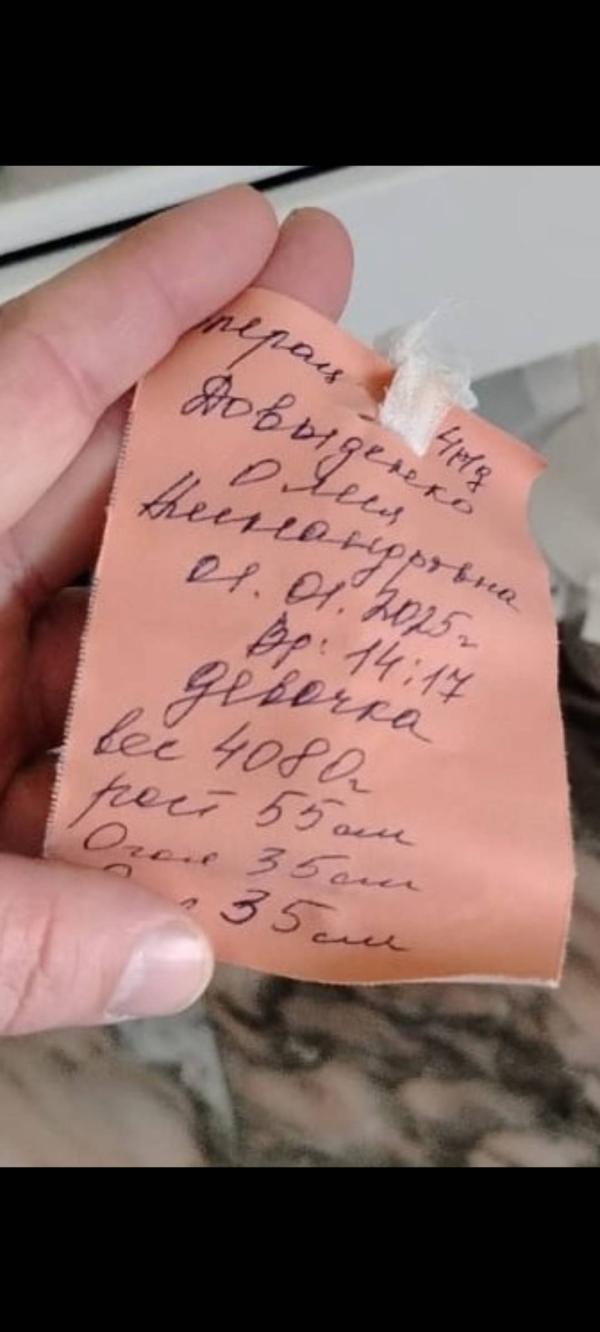 операц
4 Мд
Довыденко
Олеся
Александровна
01.01.2025г
Вр: 14:17
девочка
вес 4080г
рост 55см
Огол 35см
35см